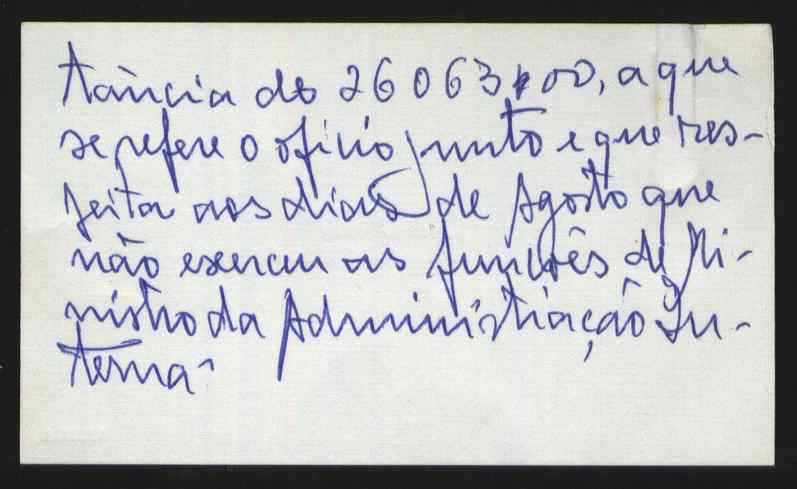 tância de 26063$00, a que
se refere o ofício junto e que res-
peita aos dias de Agosto que
não exerceu as funções de Mi-
nistro da Administração In-
terna.